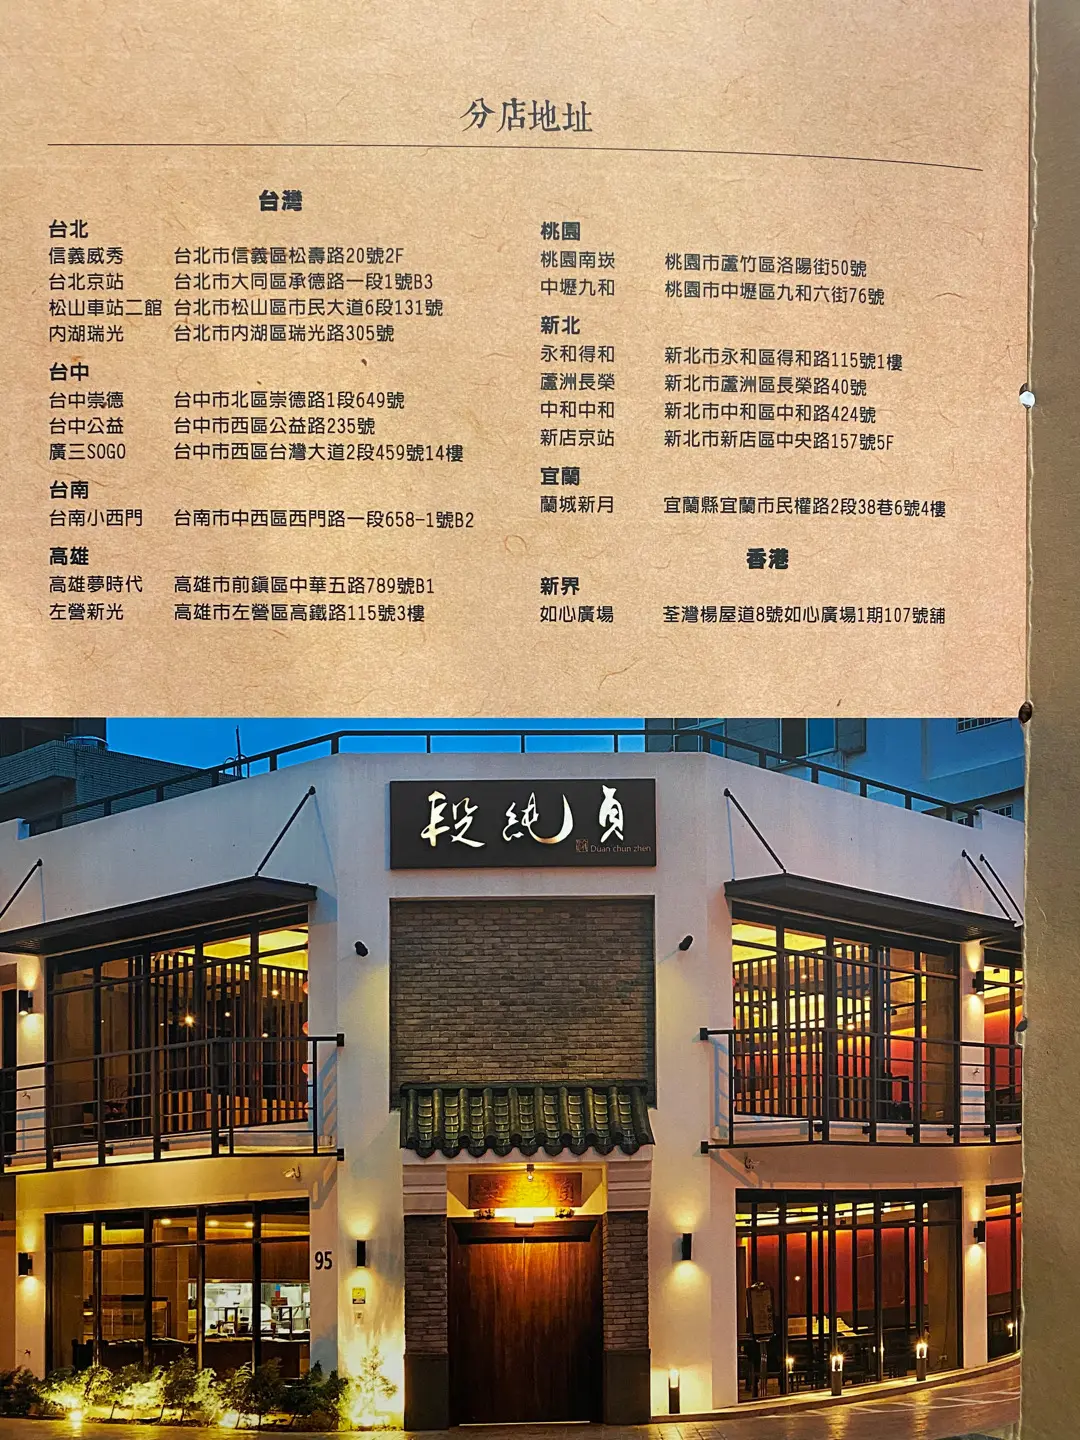 分店地址
台灣
台北
信義威秀 台北市信義區松壽路20號2F
台北京站 台北市大同區承德路一段1號B3
松山車站二館 台北市松山區市民大道6段131號
內湖瑞光 台北市內湖區瑞光路305號
台中
台中崇德 台中市北區崇德路1段649號
台中公益 台中市西區公益路235號
廣三SOGO 台中市西區台灣大道2段459號14樓
台南
台南小西門 台南市中西區西門路一段658-1號B2
高雄
高雄夢時代 高雄市前鎮區中華五路789號B1
左營新光 高雄市左營區高鐵路115號3樓
桃園
桃園南崁 桃園市蘆竹區洛陽街50號
中壢九和 桃園市中壢區九和六街76號
新北
永和得和 新北市永和區得和路115號1樓
蘆洲長榮 新北市蘆洲區長榮路40號
中和中和 新北市中和區中和路424號
新店京站 新北市新店區中央路157號5F
宜蘭
蘭城新月 宜蘭縣宜蘭市民權路2段38巷6號4樓
香港
新界
如心廣場 荃灣楊屋道8號如心廣場1期107號舖
段純貞
Duan chun zhen
95